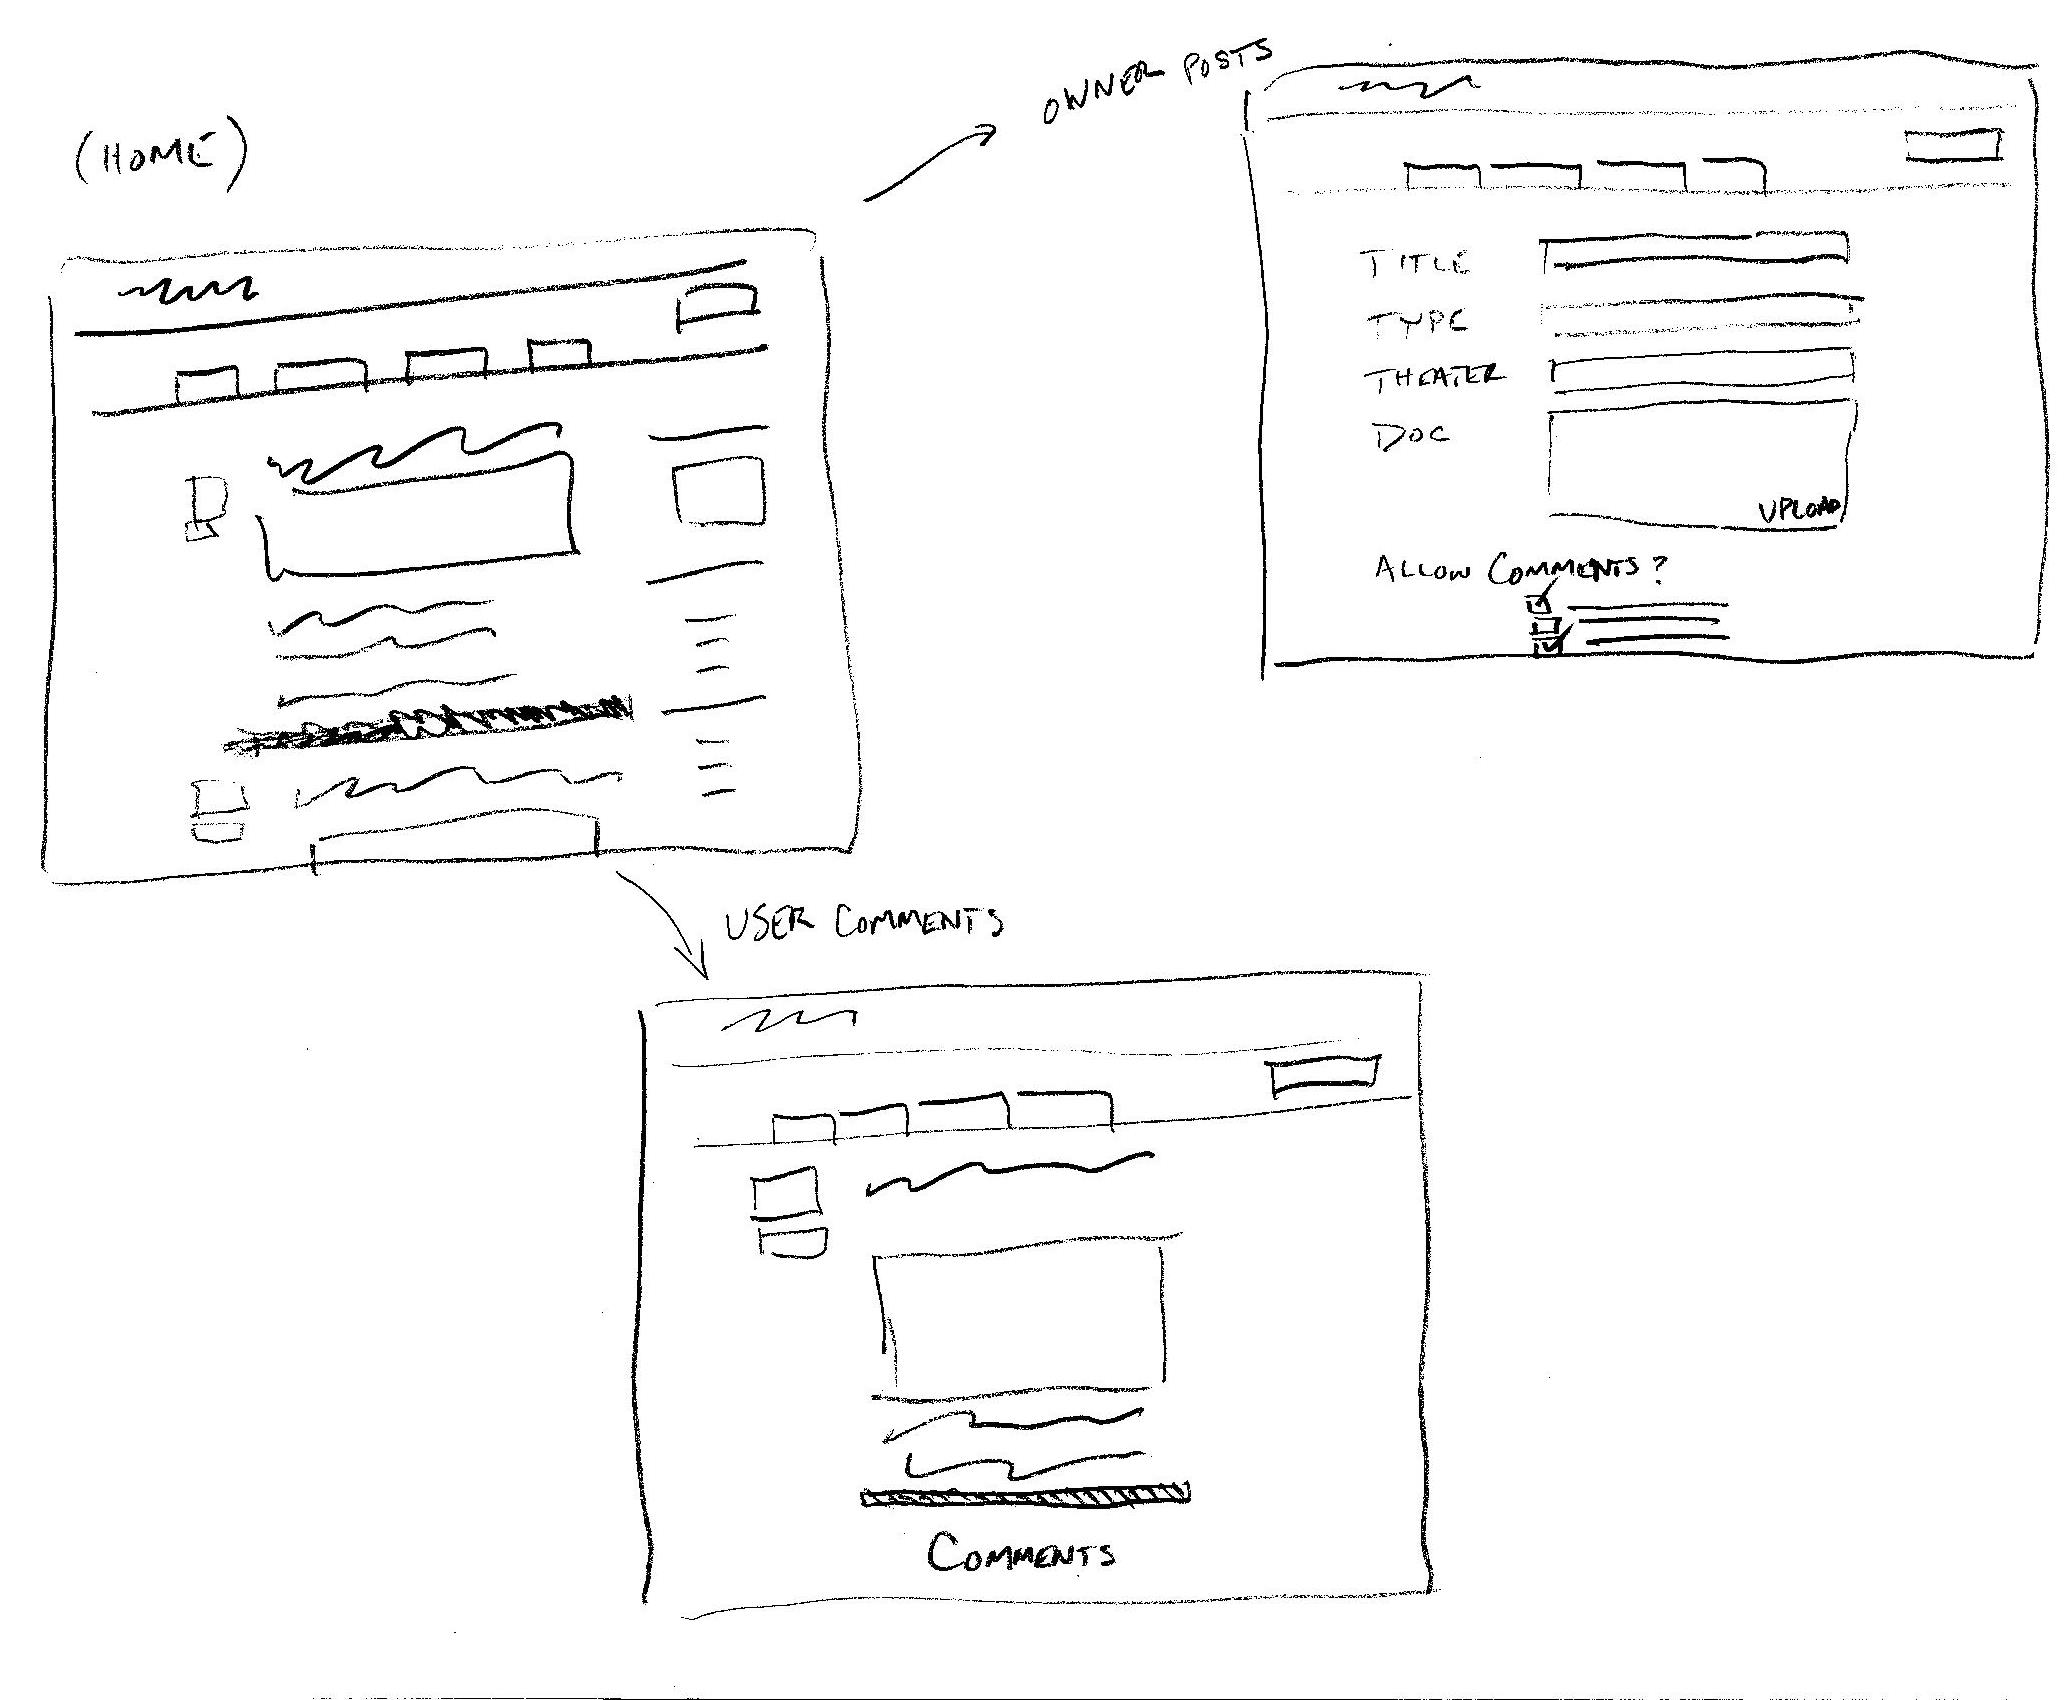 (HOME)
OWNER POSTS
TITLE
TYPE
THEATER
DOC
UPLOAD
ALLOW COMMENTS?
USER COMMENTS
COMMENTS